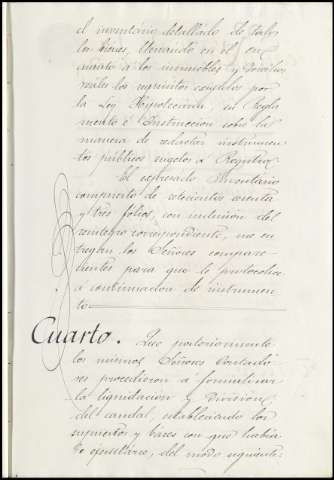 el inventario detallado de todos
los bienes, llenando en él en
cuanto á los inmuebles y derechos
reales los requisitos exigidos por
la Ley Hipotecaria, su Regla
mento é Instruccion sobre la
manera de redactar instrumen
tos públicos sugetos á Registro.
El expresado Inventario
compuesto de setecientos sesenta
y tres folios, con inclusion del
reintegro correspondiente, me en
tregan los Señores compare-
cientes para que le protocolice
á continuacion de instrumen
to
Cuarto. Que posteriormente
los mismos Señores Contado
res procedieron á formalizar
la liquidacion y Division
del caudal, estableciendo los
supuestos y bases con que habia
de ejecutarse, del modo siguiente: